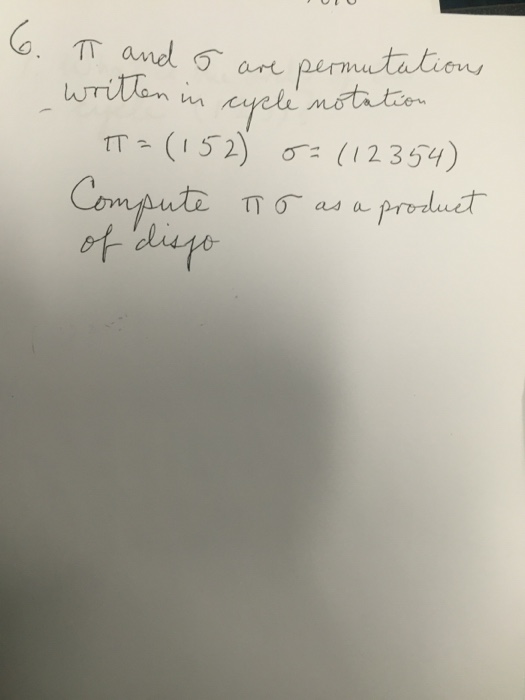 6. π and σ are permutations
written in cycle notation
π = (152) σ = (12354)
Compute π σ as a product
of disjo